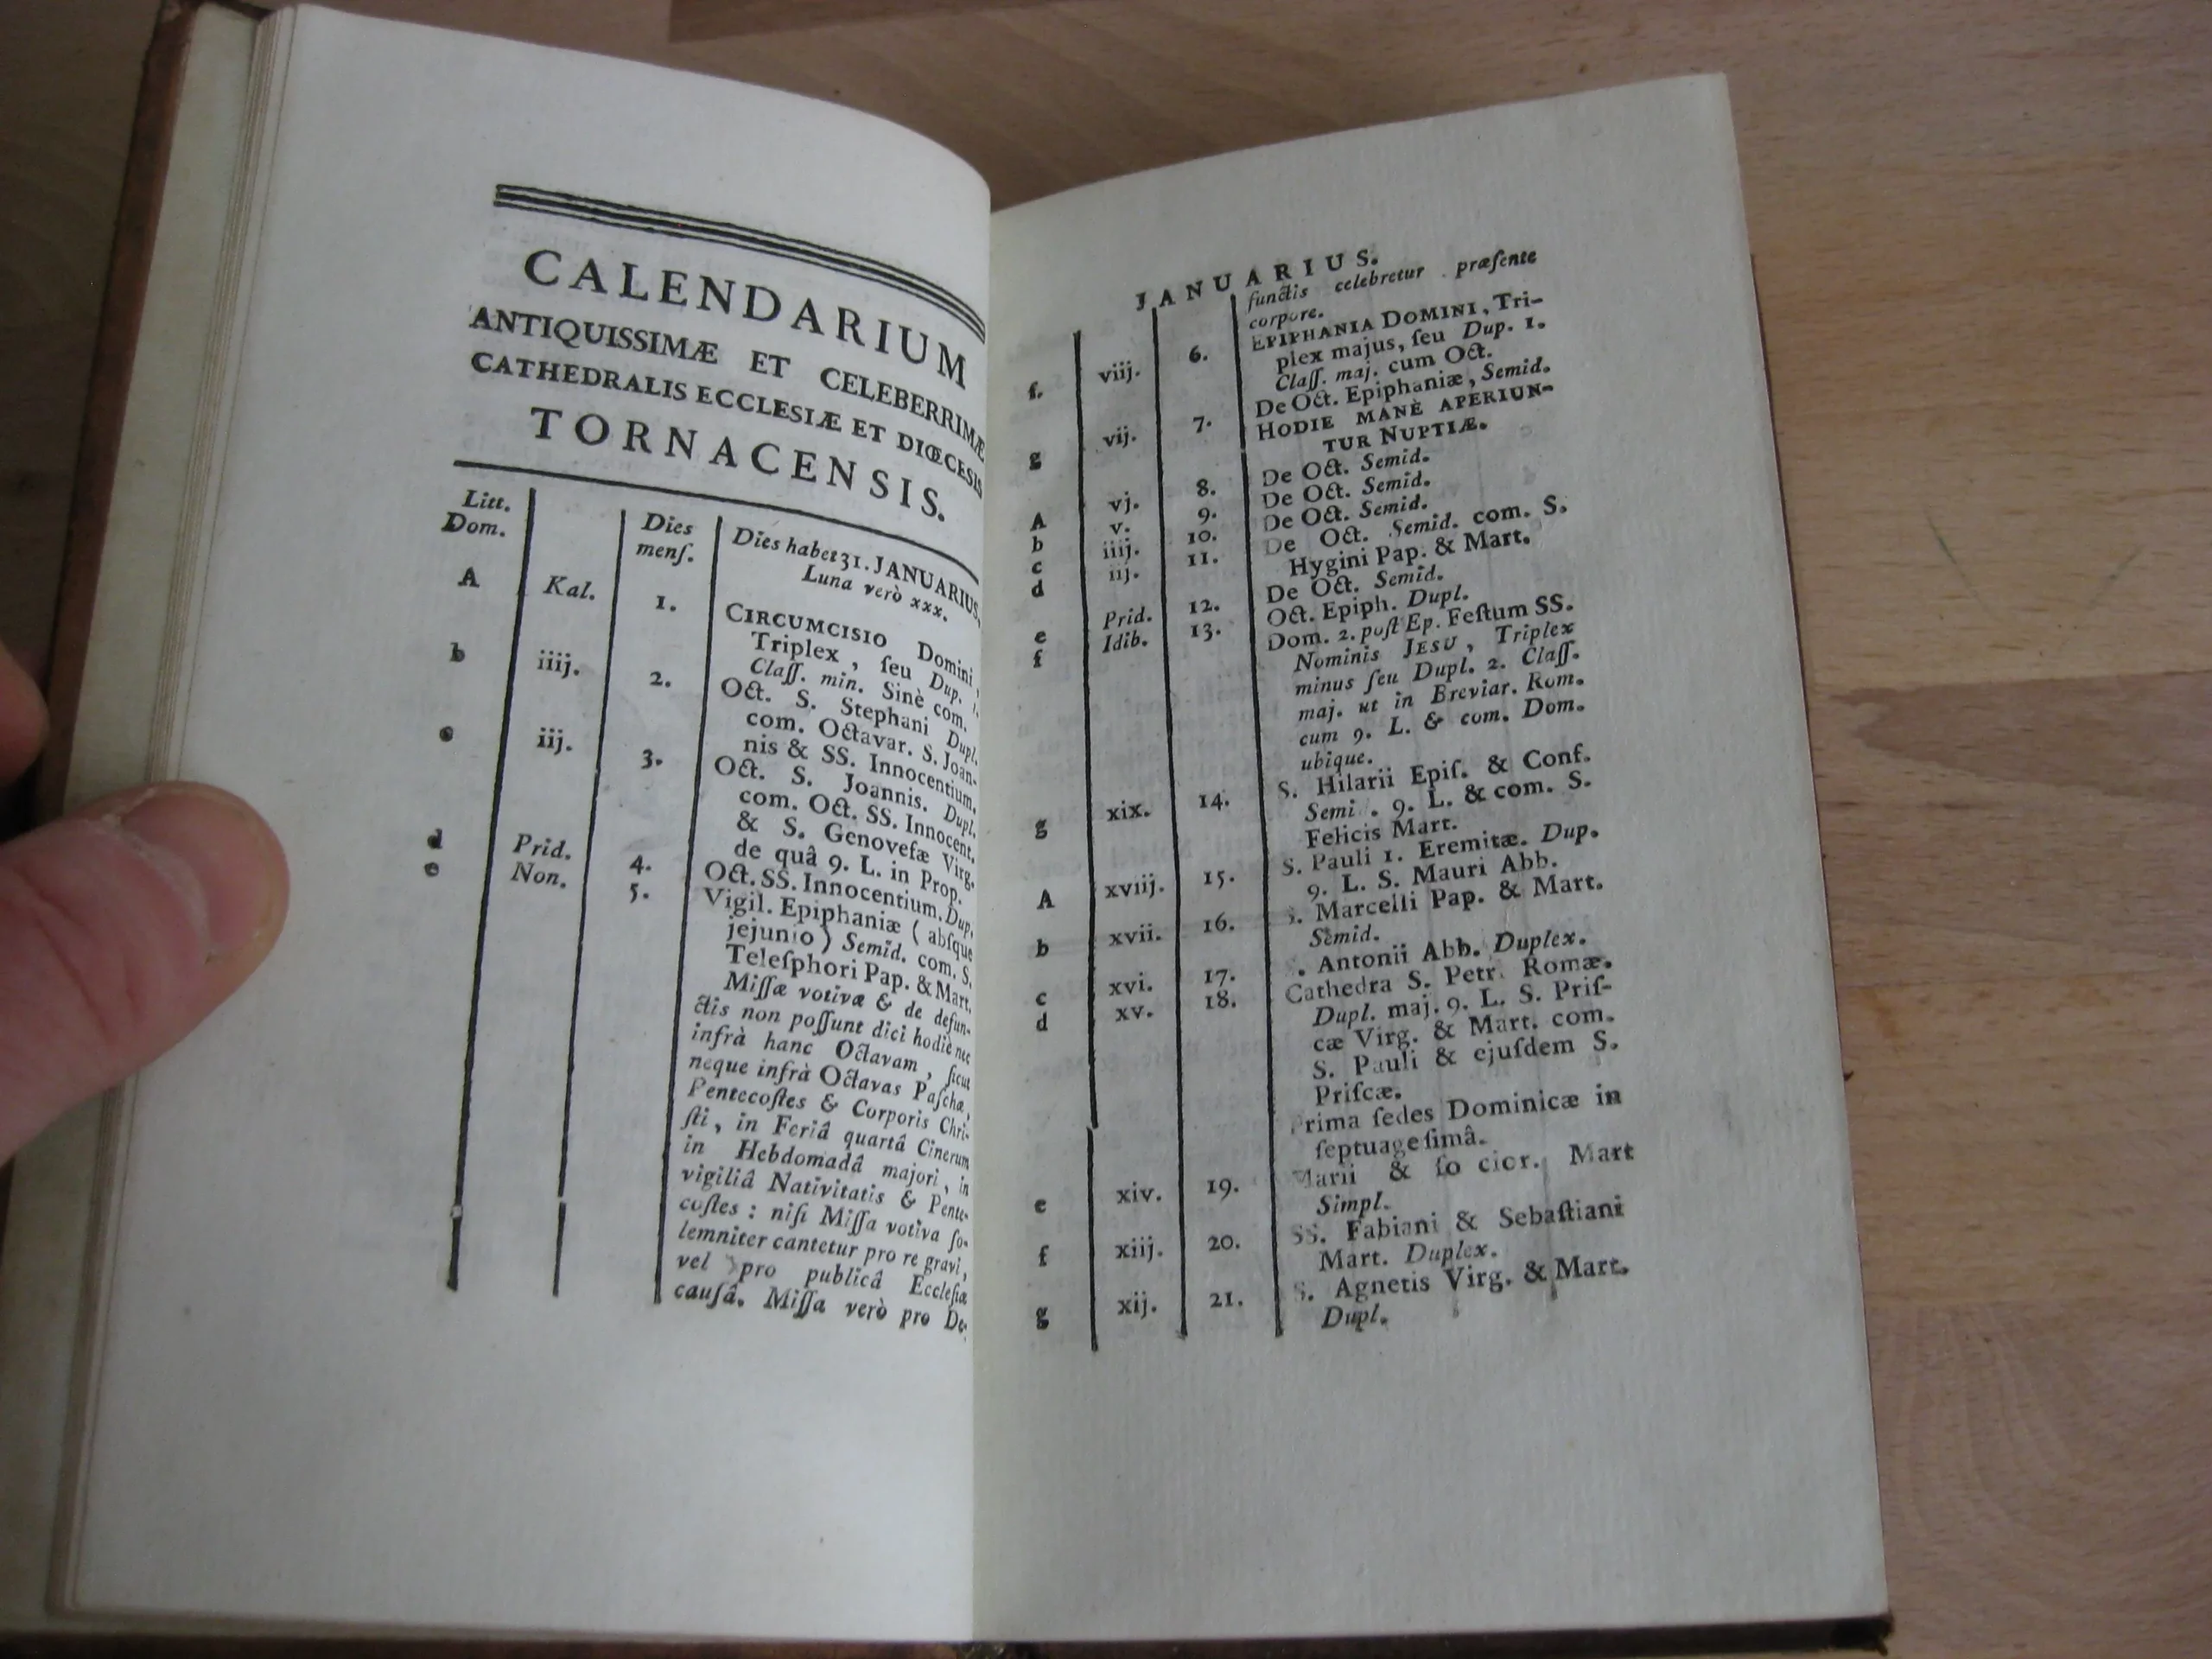 CALENDARIUM
ANTIQUISSIMÆ ET CELEBERRIMÆ
CATHEDRALIS ECCLESIÆ ET DIŒCESIS
TORNACENSIS.
Litt. Dom. Dies menſ. Dies habet 31. JANUARIUS,
Luna verò xxx.
A Kal. 1. CIRCUMCISIO Domini,
Triplex, ſeu Dup. 1.
Claſſ. min. Sinè com.
b iiij. 2. Oct. S. Stephani Dupl.
com. Octavar. S. Joan-
nis & SS. Innocentium.
c iij. 3. Oct. S. Joannis. Dupl.
com. Oct. SS. Innocent.
& S. Genovefæ Virg.
de quâ 9. L. in Prop.
d Prid. 4. Oct. SS. Innocentium. Dup.
e Non. 5. Vigil. Epiphaniæ ( abſque
jejunio ) Semid. com. S.
Teleſphori Pap. & Mart.
Miſſæ votivæ & de defun-
ctis non poſſunt dici hodiè nec
infrà hanc Octavam, ſicut
neque infrà Octavas Paſchæ,
Pentecoſtes & Corporis Chri-
ſti, in Feriâ quartâ Cinerum
in Hebdomadâ majori, in
vigiliâ Nativitatis & Pente-
coſtes : niſi Miſſa votiva ſo-
lemniter cantetur pro re gravi,
vel pro publicâ Eccleſiæ
cauſâ. Miſſa verò pro De-
JANUARIUS.
functis celebretur præſente
corpore.
f. viij. 6. EPIPHANIA DOMINI, Tri-
plex majus, ſeu Dup. 1.
Claſſ. maj. cum Oct.
g vij. 7. De Oct. Epiphaniæ, Semid.
HODIE MANÈ APERIUN-
TUR NUPTIÆ.
A vj. 8. De Oct. Semid.
b v. 9. De Oct. Semid.
c iiij. 10. De Oct. Semid.
d iij. 11. De Oct. Semid. com. S.
Hygini Pap. & Mart.
e Prid. 12. De Oct. Semid.
f Idib. 13. Oct. Epiph. Dupl.
Dom. 2. poſt Ep. Feſtum SS.
Nominis JESU, Triplex
minus ſeu Dupl. 2. Claſſ.
maj. ut in Breviar. Rom.
cum 9. L. & com. Dom.
ubique.
g xix. 14. S. Hilarii Epiſ. & Conf.
Semi . 9. L. & com. S.
Felicis Mart.
A xviij. 15. S. Pauli 1. Eremitæ. Dup.
9. L. S. Mauri Abb.
b xvii. 16. S. Marcelli Pap. & Mart.
Semid.
c xvi. 17. . Antonii Abb. Duplex.
d xv. 18. Cathedra S. Petr. Romæ.
Dupl. maj. 9. L. S. Priſ-
cæ Virg. & Mart. com.
S. Pauli & ejuſdem S.
Priſcæ.
Prima ſedes Dominicæ in
ſeptuageſimâ.
e xiv. 19. Marii & ſo cior. Mart
Simpl.
f xiij. 20. SS. Fabiani & Sebaſtiani
Mart. Duplex.
g xij. 21. S. Agnetis Virg. & Mart.
Dupl.